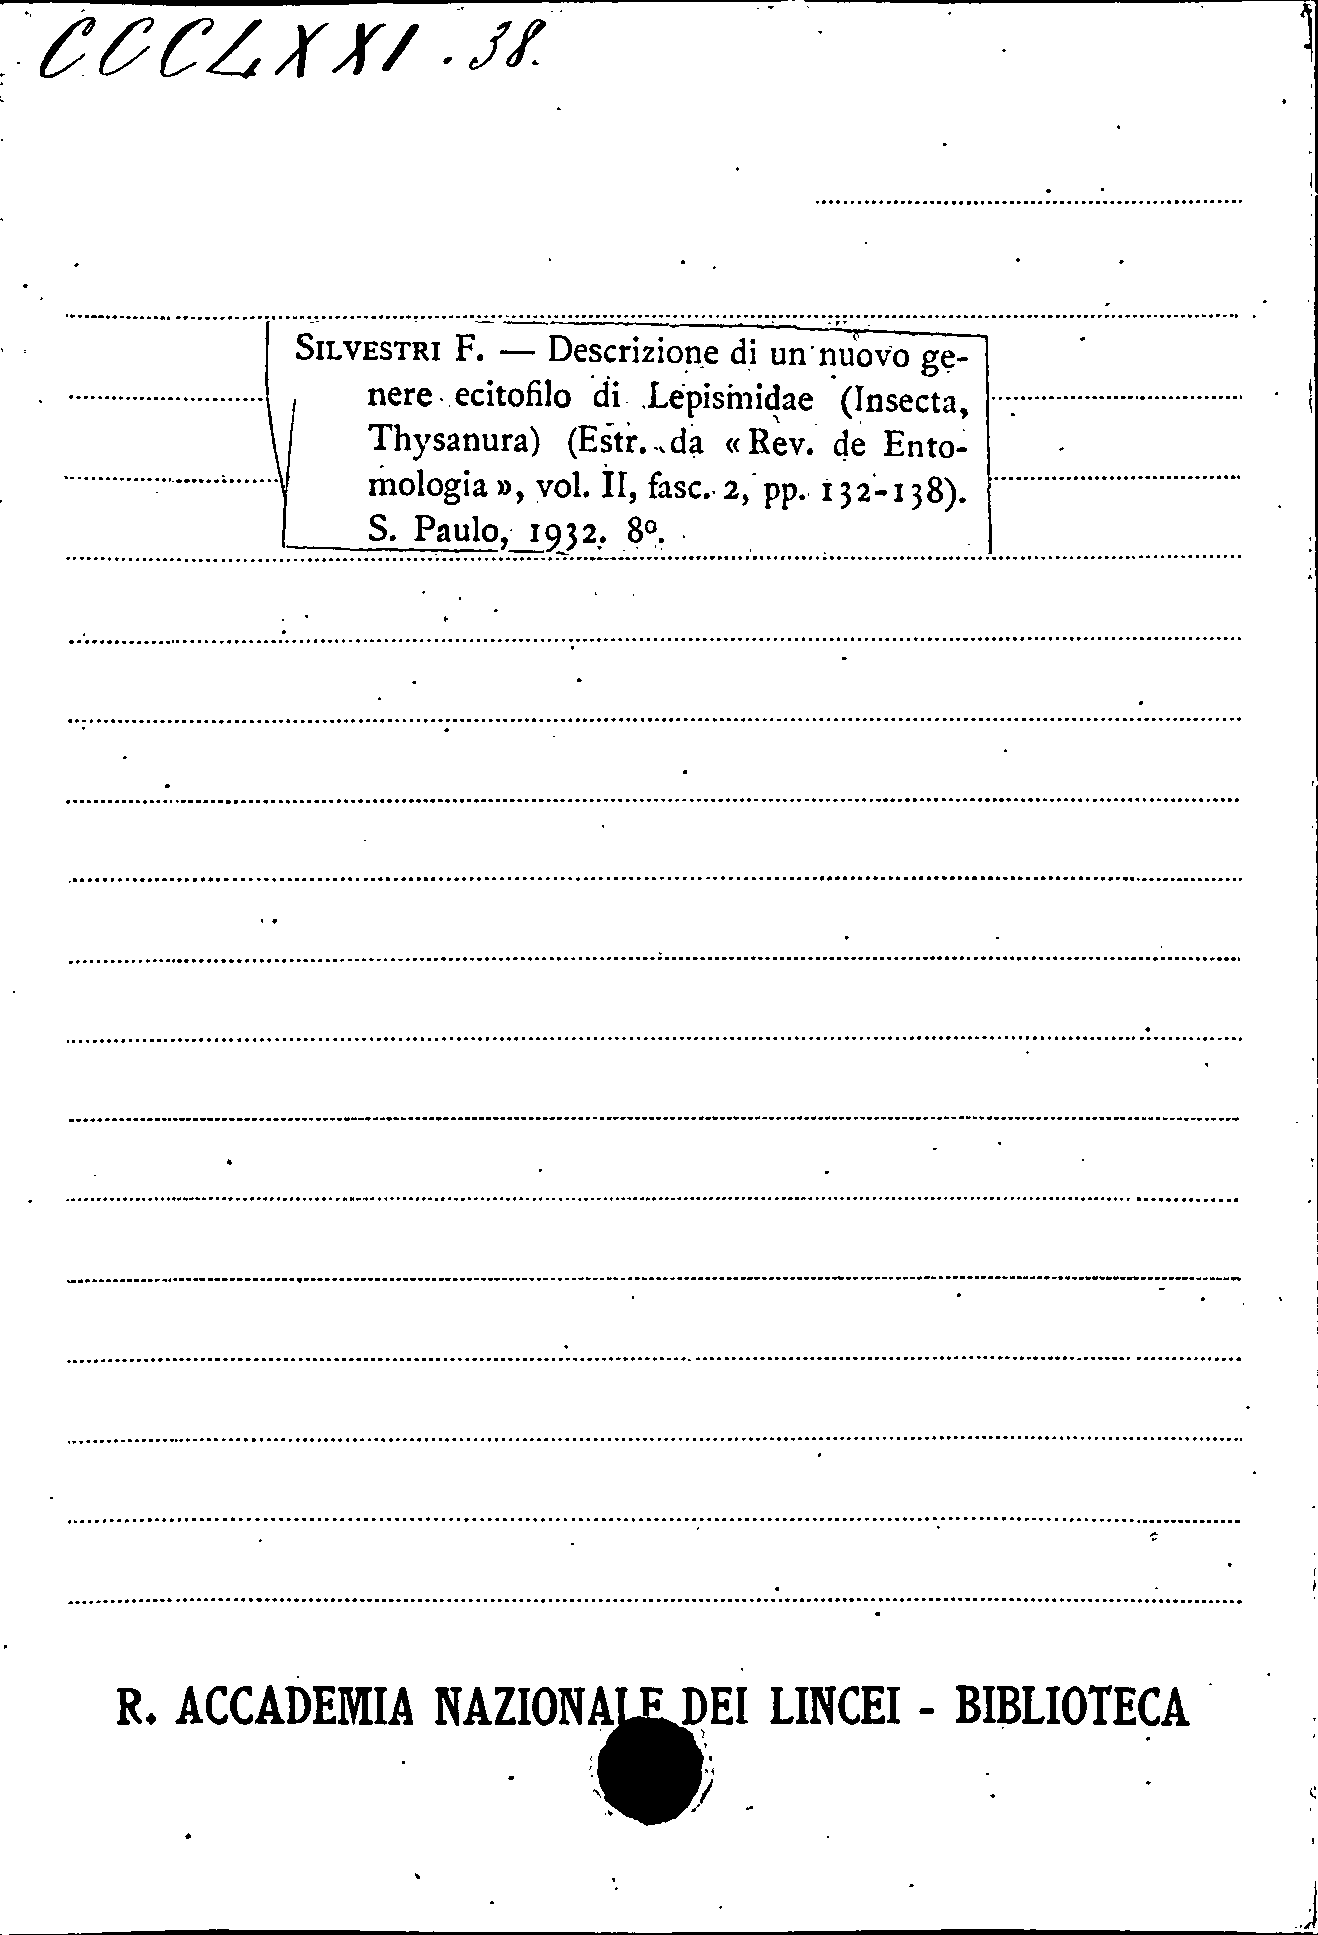 CCCLXXI.38.
SILVESTRI F. — Descrizione di un nuovo ge-
nere ecitofilo di Lepismidae (Insecta,
Thysanura) (Estr. da « Rev. de Ento-
mologia », vol. II, fasc. 2, pp. 132-138).
S. Paulo, 1932. 8º.
R. ACCADEMIA NAZIONALE DEI LINCEI - BIBLIOTECA